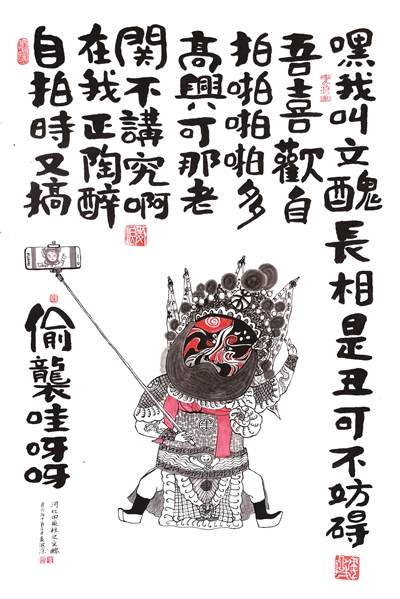 嘿我叫文醜長相是丑可不妨碍
吾喜歡自
拍啪啪啪多
高興可那老
関不講究啊
在我正陶醉
自拍時又搞
偷襲哇呀呀
河北四庭柱之文醜